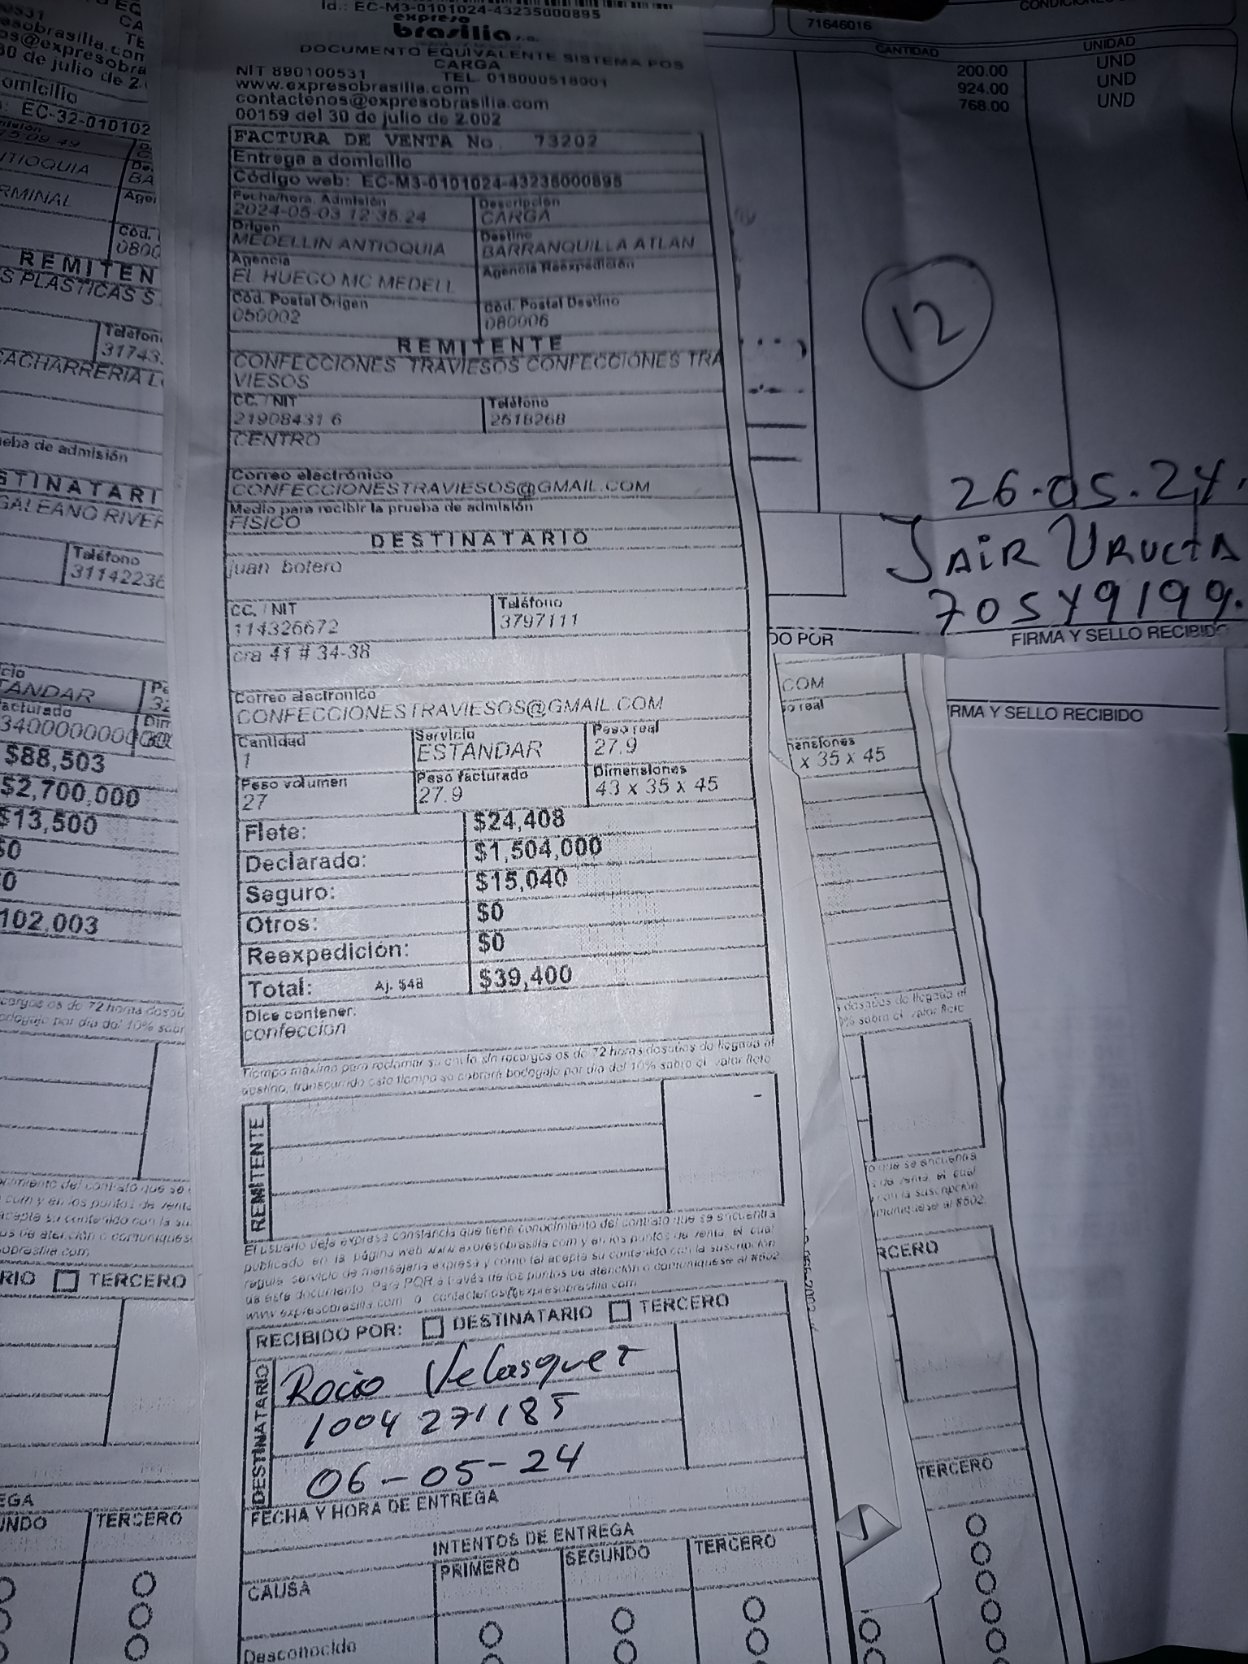 Id.: EC-M3-0101024-43235000895
expreso
brasilia s.a.
DOCUMENTO EQUIVALENTE SISTEMA POS
CARGA
NIT 890100531 TEL. 018000518001
www.expresobrasilia.com
contactenos@expresobrasilia.com
00159 del 30 de julio de 2.002
FACTURA DE VENTA No. 73202
Entrega a domicilio
Código web: EC-M3-0101024-43235000895
Fecha/hora. Admisión Descripción
2024-05-03 12:35:24 CARGA
Origen Destino
MEDELLIN ANTIOQUIA BARRANQUILLA ATLAN
Agencia Agencia Reexpedición
EL HUECO MC MEDELL
Cód. Postal Origen Cód. Postal Destino
050002 080006
REMITENTE
CONFECCIONES TRAVIESOS CONFECCIONES TRA
VIESOS
CC. / NIT Teléfono
21908431 6 2518268
CENTRO
Correo electrónico
CONFECCIONESTRAVIESOS@GMAIL.COM
Medio para recibir la prueba de admisión
FISICO
DESTINATARIO
juan botero
CC. / NIT Teléfono
114326672 3797111
cra 41 # 34-38
Correo electronico
CONFECCIONESTRAVIESOS@GMAIL.COM
Cantidad Servicio Peso real
1 ESTANDAR 27.9
Peso volumen Peso facturado Dimensiones
27 27.9 43 x 35 x 45
Flete: $24,408
Declarado: $1,504,000
Seguro: $15,040
Otros: $0
Reexpedición: $0
Total: Aj. $48 $39,400
Dice contener:
confeccion
Tiempo máximo para reclamar su envío sin recargos es de 72 horas después de llegada al
destino, transcurrido este tiempo se cobrará bodegaje por día del 10% sobre el valor flete
REMITENTE
El usuario deja expresa constancia que tiene conocimiento del contrato que se encuentra
publicado en la página web www.expresobrasilia.com y en los puntos de venta, el cual
regula servicio de mensajería expresa y como tal acepta su contenido con la suscripción
de este documento. Para PQR a través de los puntos de atención o comuníquese al #502
www.expresobrasilia.com o contactenos@expresobrasilia.com
RECIBIDO POR: DESTINATARIO TERCERO
DESTINATARIO
Rocio Velasquez
1004 271185
06-05-24
FECHA Y HORA DE ENTREGA
INTENTOS DE ENTREGA
CAUSA PRIMERO SEGUNDO TERCERO
Desconocido
71646016
CANTIDAD UNIDAD
200.00 UND
924.00 UND
768.00 UND
12
26.05.24.
JAIR URUETA
70549199.
FIRMA Y SELLO RECIBIDO
DO POR
RMA Y SELLO RECIBIDO
COM
nensiones
x 35 x 45
RCERO
TERCERO
0 de julio de 2.
omicilio
: EC-32-010102
TIOQUIA
RMINAL
REMITEN
S PLASTICAS S
Teléfon
31743
CACHARRERIA L
eba de admisión
STINATARI
GALEANO RIVER
Teléfono
31142236
TANDAR
acturado
$88,503
$2,700,000
$13,500
$0
0
102,003
RIO TERCERO
EGA
UNDO TERCERO